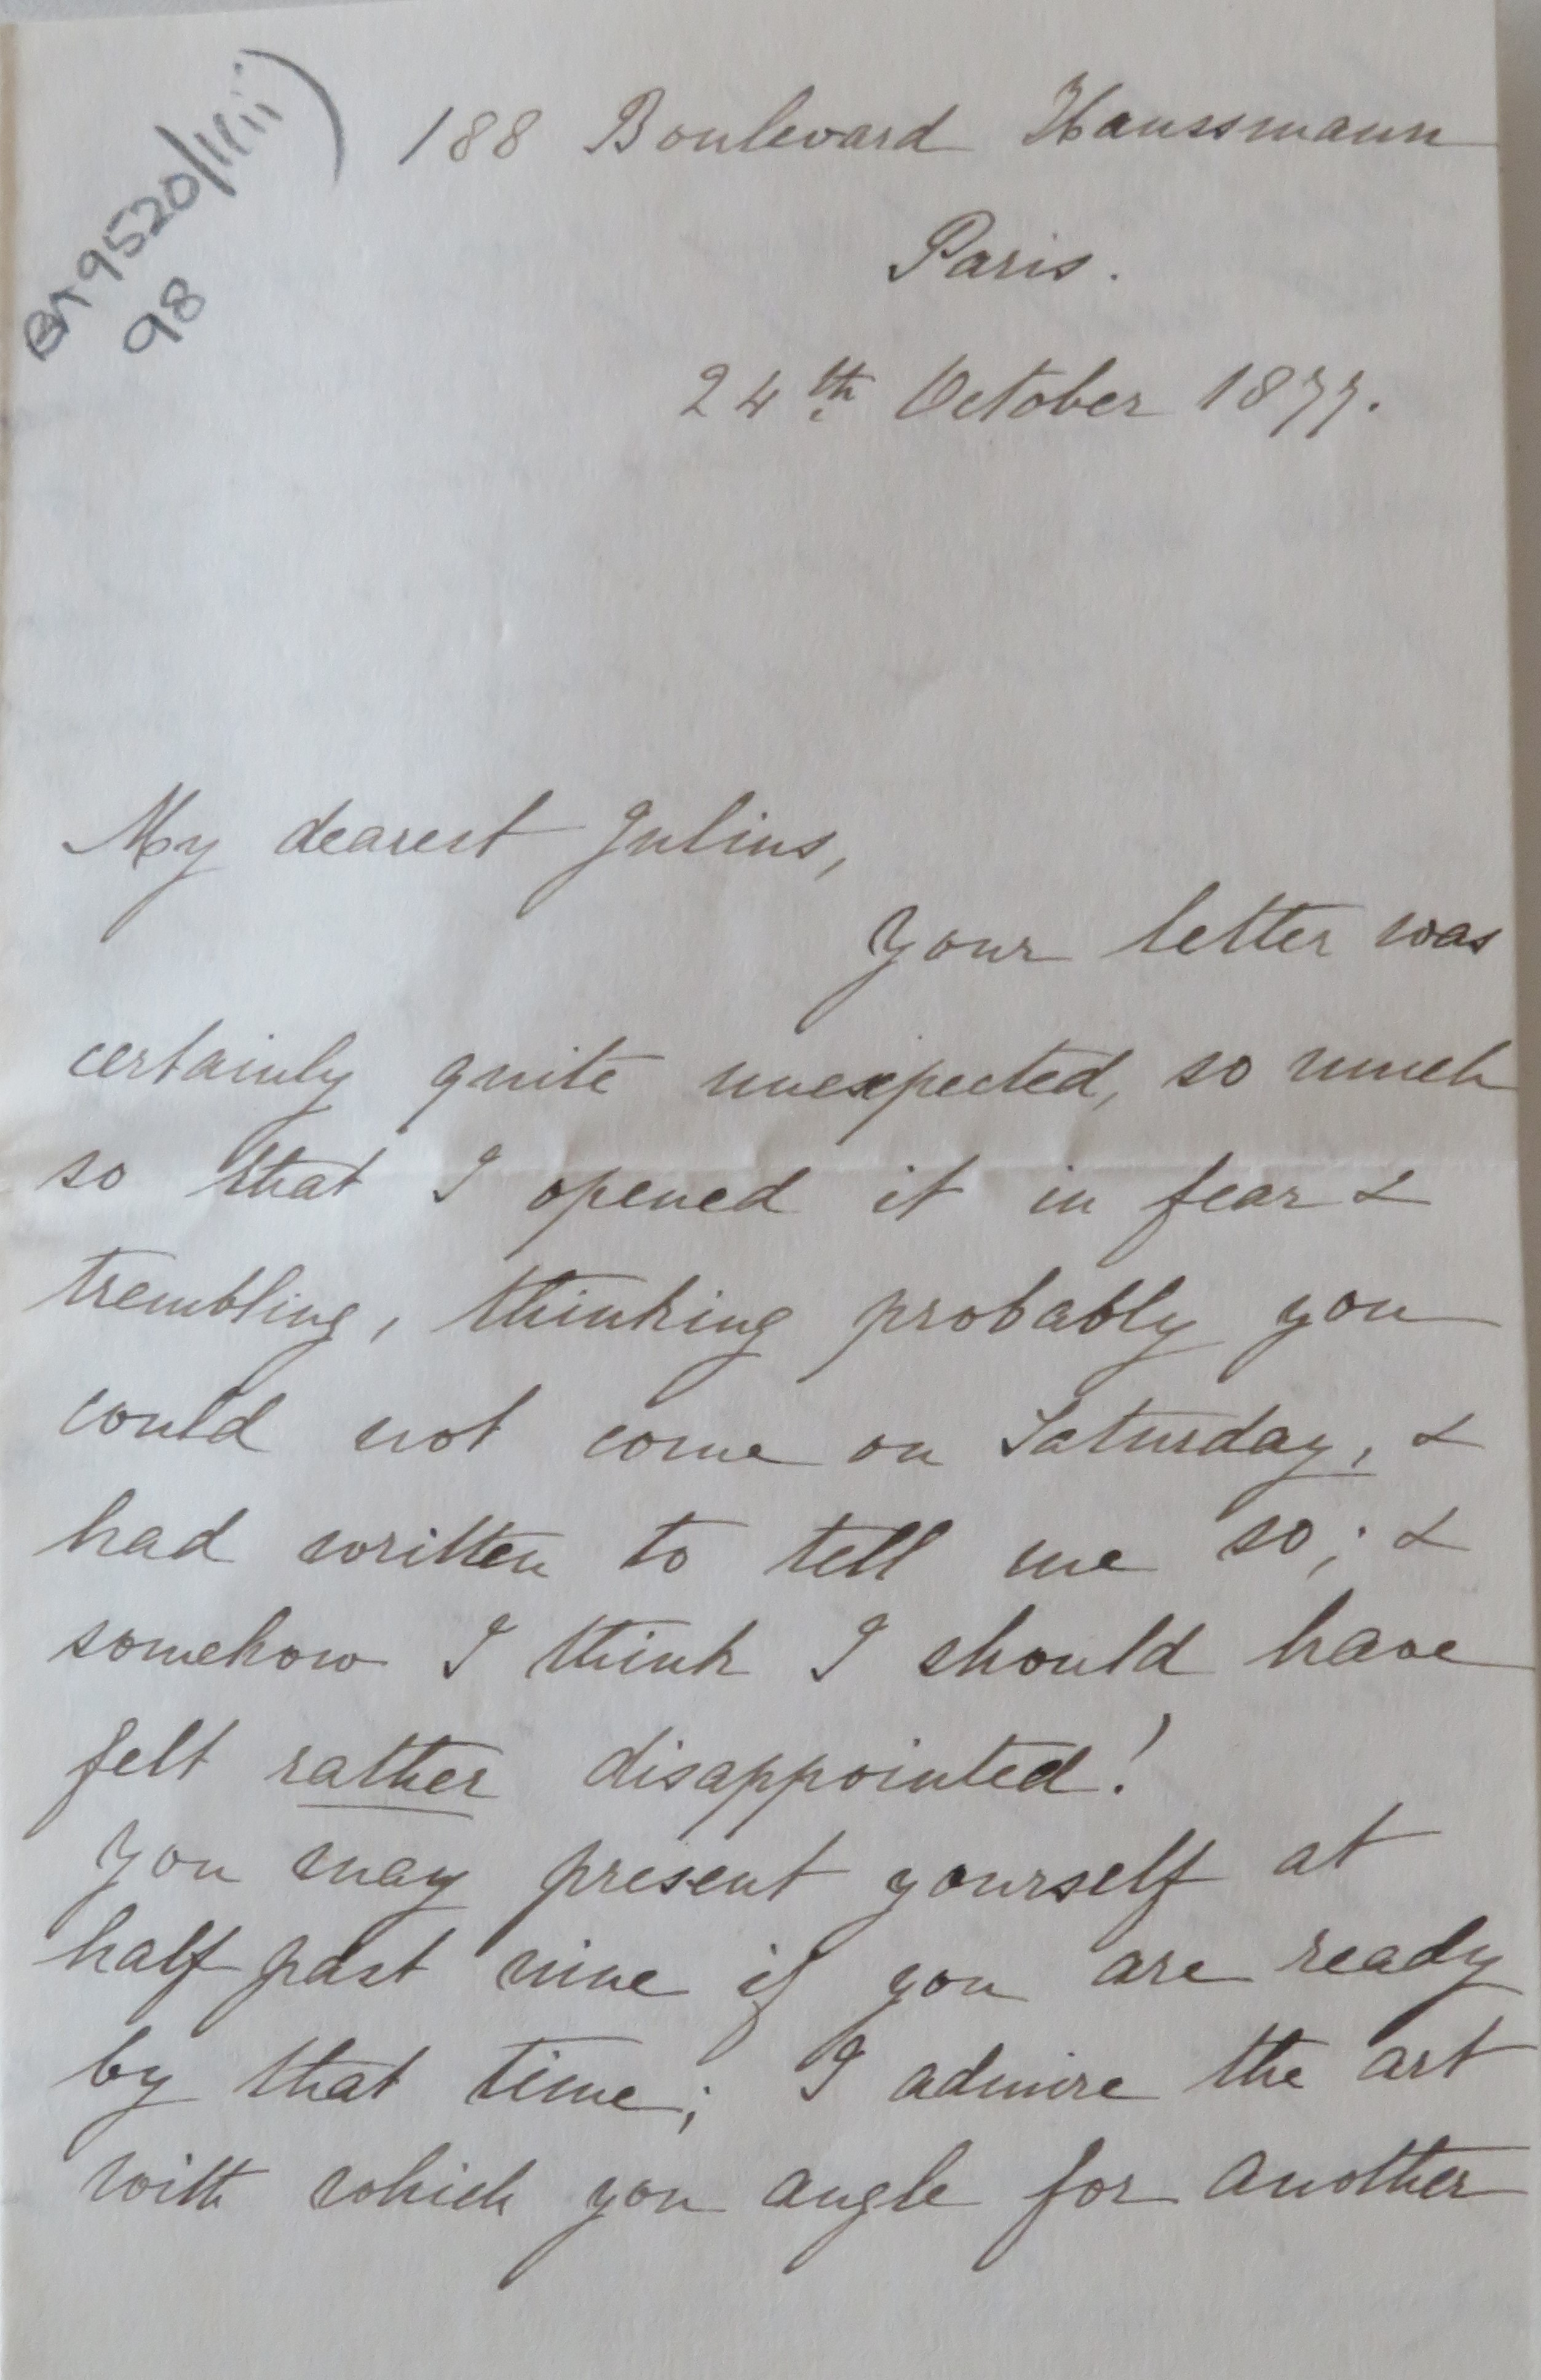 188 Boulevard Haussmann
Paris.
24th October 1877.
98
My dearest Julius,
Your letter was
certainly quite unexpected, so much
so that I opened it in fear &
trembling, thinking probably you
could not come on Saturday, &
had written to tell me so; &
somehow I think I should have
felt rather disappointed!
You may present yourself at
half past nine if you are ready
by that time; I admire the art
with which you angle for another